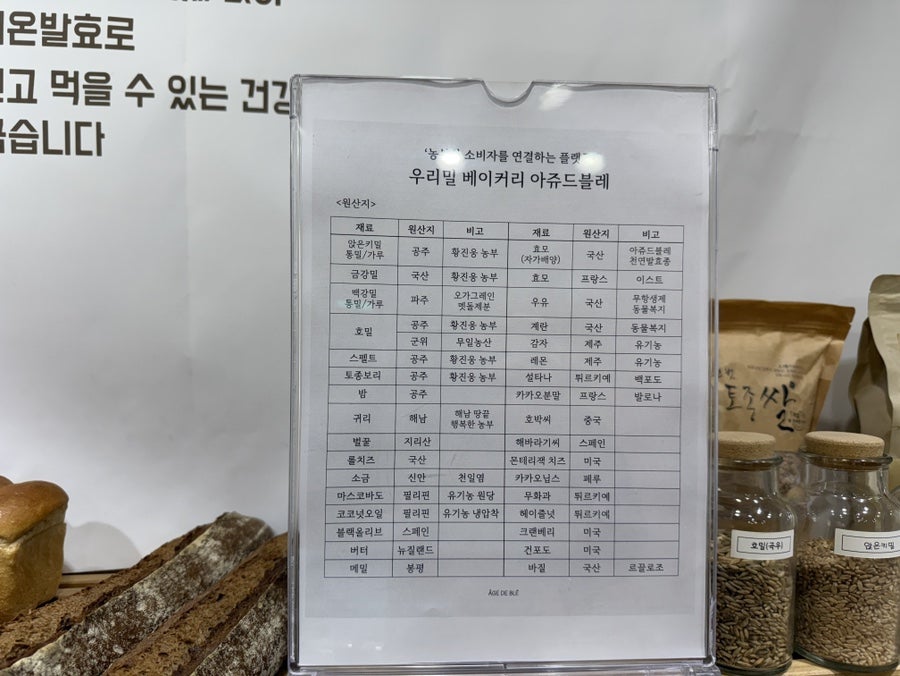 온발효로
먹을 수 있는
습니다
소비자를 연결하는
우리밀 베이커리 아쥬드블레
<원산지>
재료 원산지 비고 재료 원산지 비고
앉은키밀 통밀/가루 공주 황진웅 농부 효모 (자가배양) 국산 아쥬드블레 천연발효종
금강밀 국산 황진웅 농부 효모 프랑스 이스트
백강밀 통밀/가루 파주 오가그레인 멧돌제분 우유 국산 무항생제 동물복지
호밀 공주 황진웅 농부 계란 국산 동물복지
군위 무일농산 감자 제주 유기농
스펠트 공주 황진웅 농부 레몬 제주 유기농
토종보리 공주 황진웅 농부 설타나 튀르키예 백포도
밤 공주 카카오분말 프랑스 발로나
귀리 해남 해남 땅끝 행복한 농부 호박씨 중국
벌꿀 지리산 해바라기씨 스페인
롤치즈 국산 몬테리잭 치즈 미국
소금 신안 천일염 카카오닙스 페루
마스코바도 필리핀 유기농 원당 무화과 튀르키예
코코넛오일 필리핀 유기농 냉압착 헤이즐넛 튀르키예
블랙올리브 스페인 크랜베리 미국
버터 뉴질랜드 건포도 미국
메밀 봉평 바질 국산 르끌로조
ÂGE DE BLÉ
토종쌀
호밀(곡우)
앉은키밀